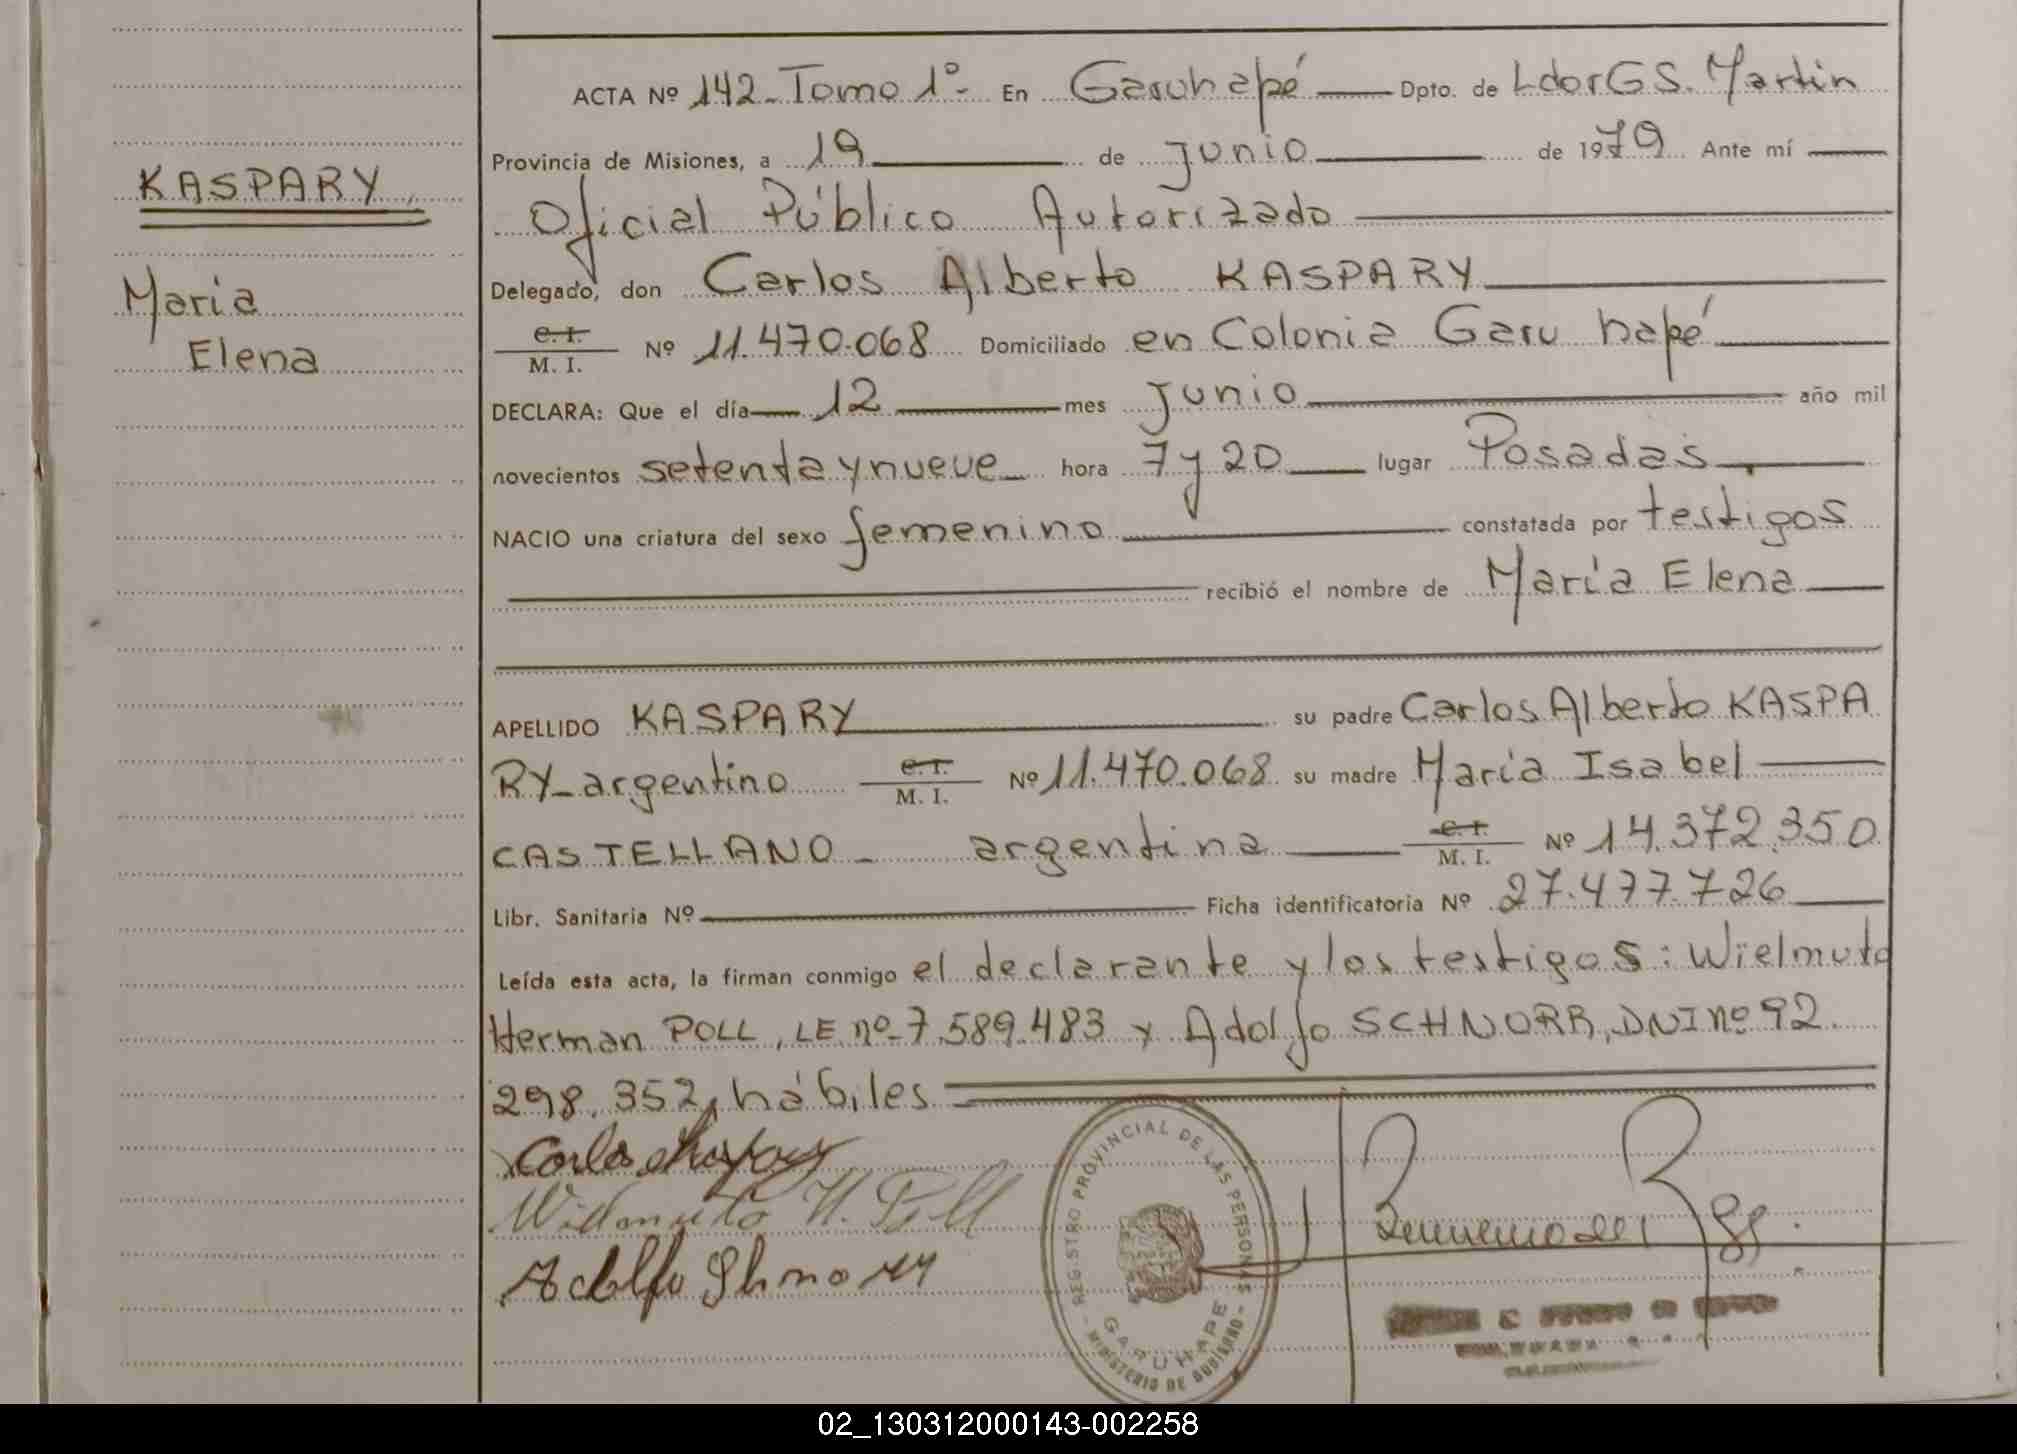 ACTA Nº 142-Tomo 1º- En Garuhapé Dpto. de LdorGS. Martin
Provincia de Misiones, a 19 de junio de 1979 Ante mí
KASPARY,
Oficial Público Autorizado
Delegado, don Carlos Alberto KASPARY
Maria
Elena
C.I.
M. I. Nº 11.470.068 Domiciliado en Colonia Garuhapé
DECLARA: Que el día 12 mes junio año mil
novecientos setentaynueve hora 7 y 20 lugar Posadas
NACIO una criatura del sexo femenino constatada por testigos
recibió el nombre de María Elena
APELLIDO KASPARY su padre Carlos Alberto KASPA
RY-argentino C.I. M. I. Nº 11.470.068 su madre María Isabel
CASTELLANO- argentina C.I. M. I. Nº 14.372.350
Libr. Sanitaria Nº Ficha identificatoria Nº 27.477.726
Leída esta acta, la firman conmigo el declarante y los testigos: Wielmuto
Herman POLL, LE nº-7.589.483 y Adolfo SCHNORR, DNI nº 92.
298.352, hábiles
REGISTRO PROVINCIAL DE LAS PERSONAS
GARUHAPE
- MINISTERIO DE GOBIERNO -
H. Poll
Adolfo
02_130312000143-002258